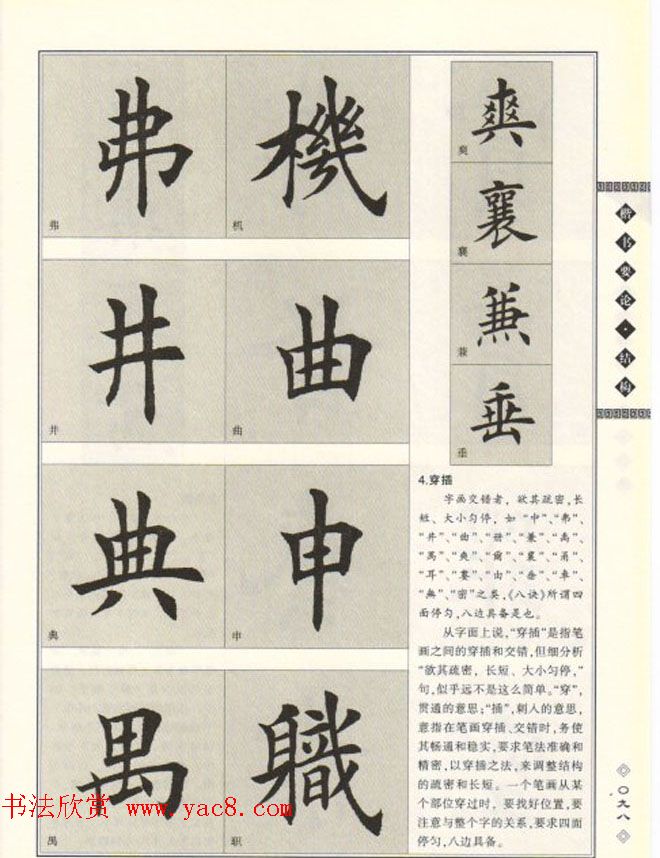 弗
機
弗
机
井
曲
井
曲
典
申
典
申
禺
職
禺
职
爽
爽
襄
襄
兼
兼
垂
垂
4.穿插
字画交错者，欲其疏密，长
短、大小匀停，如“中”、“弗”、
“井”、“曲”、“册”、“兼”、“禹”、
“禺”、“爽”、“爾”、“襄”、“甬”、
“耳”、“婁”、“由”、“垂”、“車”、
“無”、“密”之类，《八诀》所谓四
面停匀，八边具备是也。
从字面上说，“穿插”是指笔
画之间的穿插和交错，但细分析
“欲其疏密，长短、大小匀停，”
句，似乎远不是这么简单。“穿”，
贯通的意思；“插”，刺入的意思，
意指在笔画穿插、交错时，务使
其畅通和稳实，要求笔法准确和
精密，以穿插之法，来调整结构
的疏密和长短。一个笔画从某
个部位穿过时，要找好位置，要
注意与整个字的关系，要求四面
停匀，八边具备。
楷书要论·结构
〇九八
书法欣赏 www.yac8.com